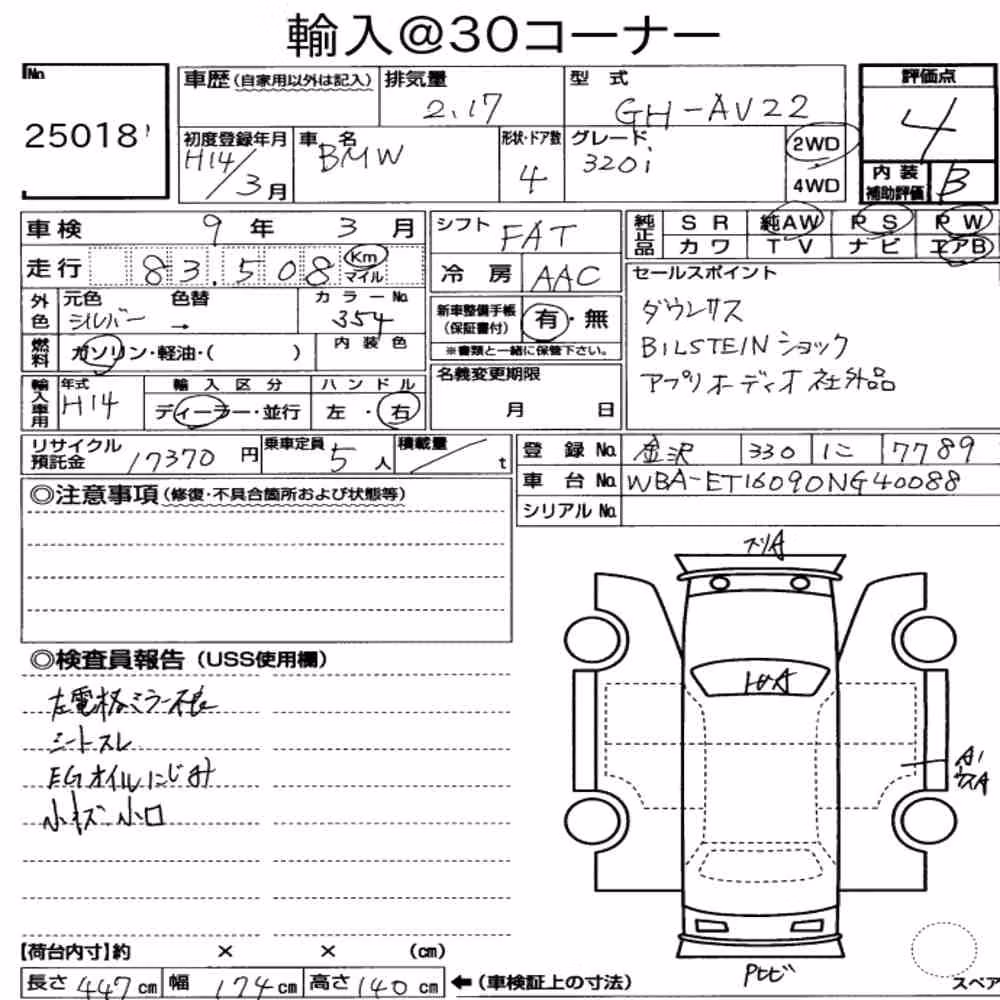 輸入@30コーナー
No. 25018
車歴（自家用以外は記入） 排気量 2.17 型式 GH-AV22 評価点 4
初度登録年月 H14/3月 車名 BMW 形状・ドア数 4 グレード 320i 2WD 4WD 内装補助評価 B
車検 9年 3月 シフト FAT 純正品 SR 純AW PS PW
カワ TV ナビ エアB
走行 83,508 Km マイル 冷房 AAC
セールスポイント
外色 元色 シルバー 色替 → カラーNo. 354
新車整備手帳（保証書付） 有・無
※書類と一緒に保管下さい。
ダウンサス
BILSTEINショック
アプリオーディオ社外品
燃料 ガソリン・軽油・（ ） 内装色
名義変更期限 月 日
輸入車用 年式 H14 輸入区分 ディーラー・並行 ハンドル 左・右
リサイクル預託金 17370円 乗車定員 5人 積載量 / t
登録No. 金沢 330 に 7789
車台No. WBA-ET16090NG40088
シリアルNo.
◎注意事項（修復・不具合箇所および状態等）
◎検査員報告（USS使用欄）
左電格ミラー不良
シートスレ
EGオイルにじみ
小キズ・小凹
A1
【荷台内寸】約 × × （cm）
長さ 447cm 幅 174cm 高さ 140cm ←（車検証上の寸法）
スペア